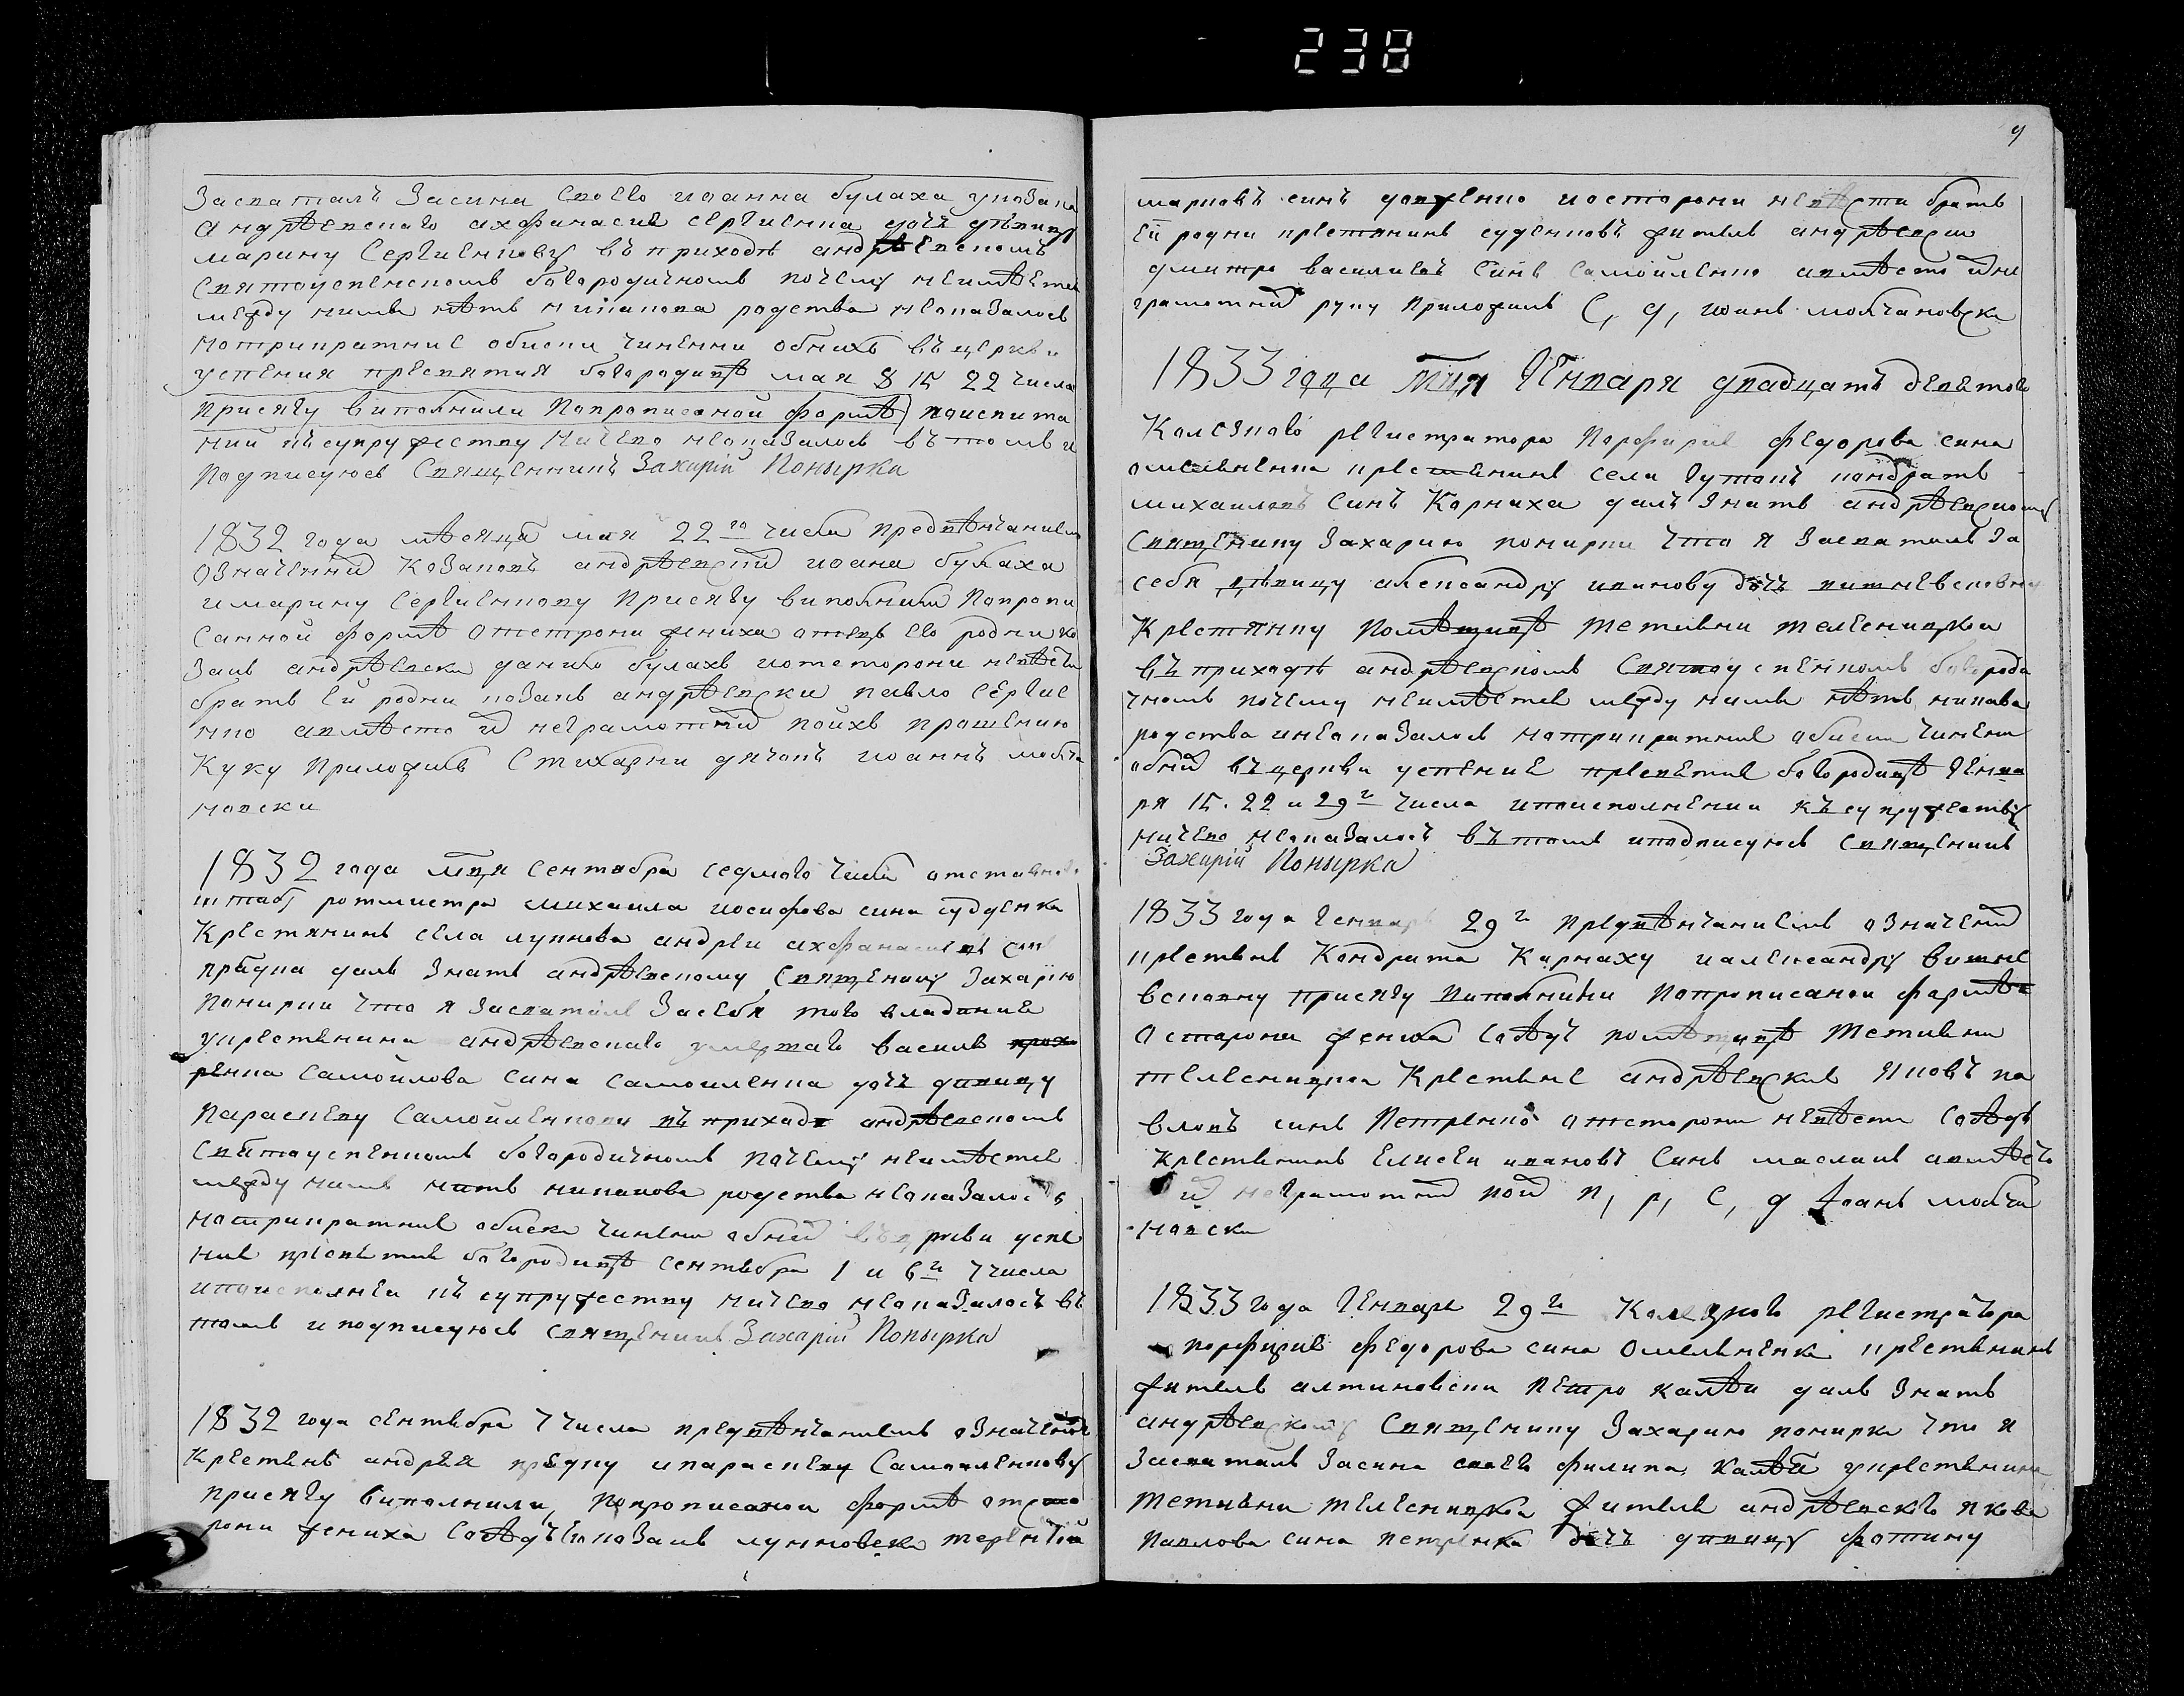 238
Засваталъ Засина своего иоанна булаха укозака
андрѣевскаго ахфанасия сергиенка дочъ дѣвицу
марину Сергиенкову въ приходѣ андрѣевскомъ
Святоуспенскомъ богородичномъ почему неимѣетсе
между ними нѣтъ никакова родства неоказалось
нотрикратние обиски чиненни обнихъ въ церкви
успения пресвятия богородицѣ мая 8 15 22 числа
присягу виполнили Попрописаной формѣ) поиспита
нии къ супружеству Ничево неоказалось въ томъ и
Подписуюсь Священникъ Захирій Понырка
1832 года мѣсяца мая 22го числа предвѣнчаниемъ
означенний козаковъ андрѣевский иоана булаха
имарину Сергиенкову Присягу виполнили Попропи
санной формѣ Отстрони жениха отецъ его родни ко
закъ андрѣевски данило булахъ иотсторони невѣсти
братъ ей родни козакъ андрѣевски павло сергие
нко авмѣсто ий неграмотний поихъ прошению
Куку Приложилъ Стихарни дячокъ иоаннъ молча
новски
1832 года мця сентабра седмого числа отставного
штабъ ротмистра михаила иосифова сина судденка
Крестянинъ села лукнова андреи ахфанасиевъ синъ
прадка далъ Знать андрѣевскому Священику Захарию
Понирки что я Засваталъ Засебя того владание
украстянина андрѣевскаго умершаго василя
Самойлова сина Самоиленка дочъ дивицу
Параскеву Самойленкову въ приходе андрѣевскомъ
Святоуспенкомъ богородичномъ почему неимѣетсе
между ними нитъ никакова родства неоказалось
нотрикратние обиски чинени обний въ церкви успе
ние пресветие богородицѣ сентебра 1 и 6го 7 числа
къ супружеству ничево неоказалось въ
томъ иподписуюсь священикъ Захарій Понырка
1832 года сентебра 7 числа предвѣнчаниемъ означений
Крестянъ андрея прадку ипараскеву Самоиленкову
Присягу виполнили, Попрописаной формѣ отсто
рони жениха Сосѣдъ козакъ лукновски терентий
9
марковъ синъ иосторони невѣсти братъ
ей родни крестянинъ суденковъ жителъ андрѣевски
дмитро василиевъ Синъ Самойленко авмѣсто ине
грамотний руку приложилъ С, д, иоанъ молчановски
1833 года мця Генваря двадцать деветого
Колезного регистратора Порфирие федорова сина
омелненка крестенинъ села гутокъ кондратъ
михаиловъ Синъ Карнаха далъ Знать андрѣевскому
Священику Захарию понирки что я Засваталъ За
себя дѣвицу александру иванову дочъ витневсковну
Крестянку помѣщицѣ Тетияни телесницкои
въ приходѣ андрѣевскомъ Святоуспенкомъ богороди
чномъ почему неимѣетсе между ними нѣтъ никава
родства инеоказалось нотрикратние обиски чинени
обний въ церкви успение пресветие богородицѣ Генва
ря 15. 22 и 29го числа ипоисполнении къ супружеству
ничево неоказалось въ томъ иподписуюсъ Священикъ
Захирій Понырка
1833 года Генваря 29го предвѣнчаниемъ означений
крестянъ Кондрата Карнаху иалександру витне
всковну присягу виполнили Попрописаной формѣ
Осторони жениха Сосѣдъ помѣщицѣ Тетияни
телесницкои Крестяне андрѣевские Яковъ па
вловъ синъ Петренко отсторони невѣсти Сосѣдъ
крестянинъ Елисеи ивановъ Синъ маслакъ авмѣсто
ий неграмотний пои п, р, с, д иоанъ молча
новски
1833 года Генваря 29го Колезного регистратора
порфирие федорова сина Омелненка крестянинъ
жителъ алтиновски Петро калѣи далъ Знать
андрѣевскому Священику Захарию понирки что я
Засваталъ Засина своего филипа калѣй укрестянина
тетияни телесницкои жителя андрѣевскго якова
павлова сина петренка дочъ дивицу фотину